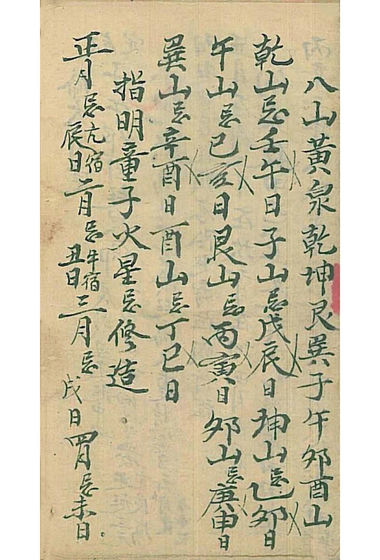 八山黃泉乾坤艮巽子午夘酉山
乾山忌壬午日子山忌戊辰日坤山忌乙夘日
午山忌己亥日艮山忌丙寅日夘山忌庚申日
巽山忌辛酉日酉山忌丁巳日
指明童子火星忌修造
正月忌亢宿辰日二月忌牛宿丑日三月忌戌日四月忌未日